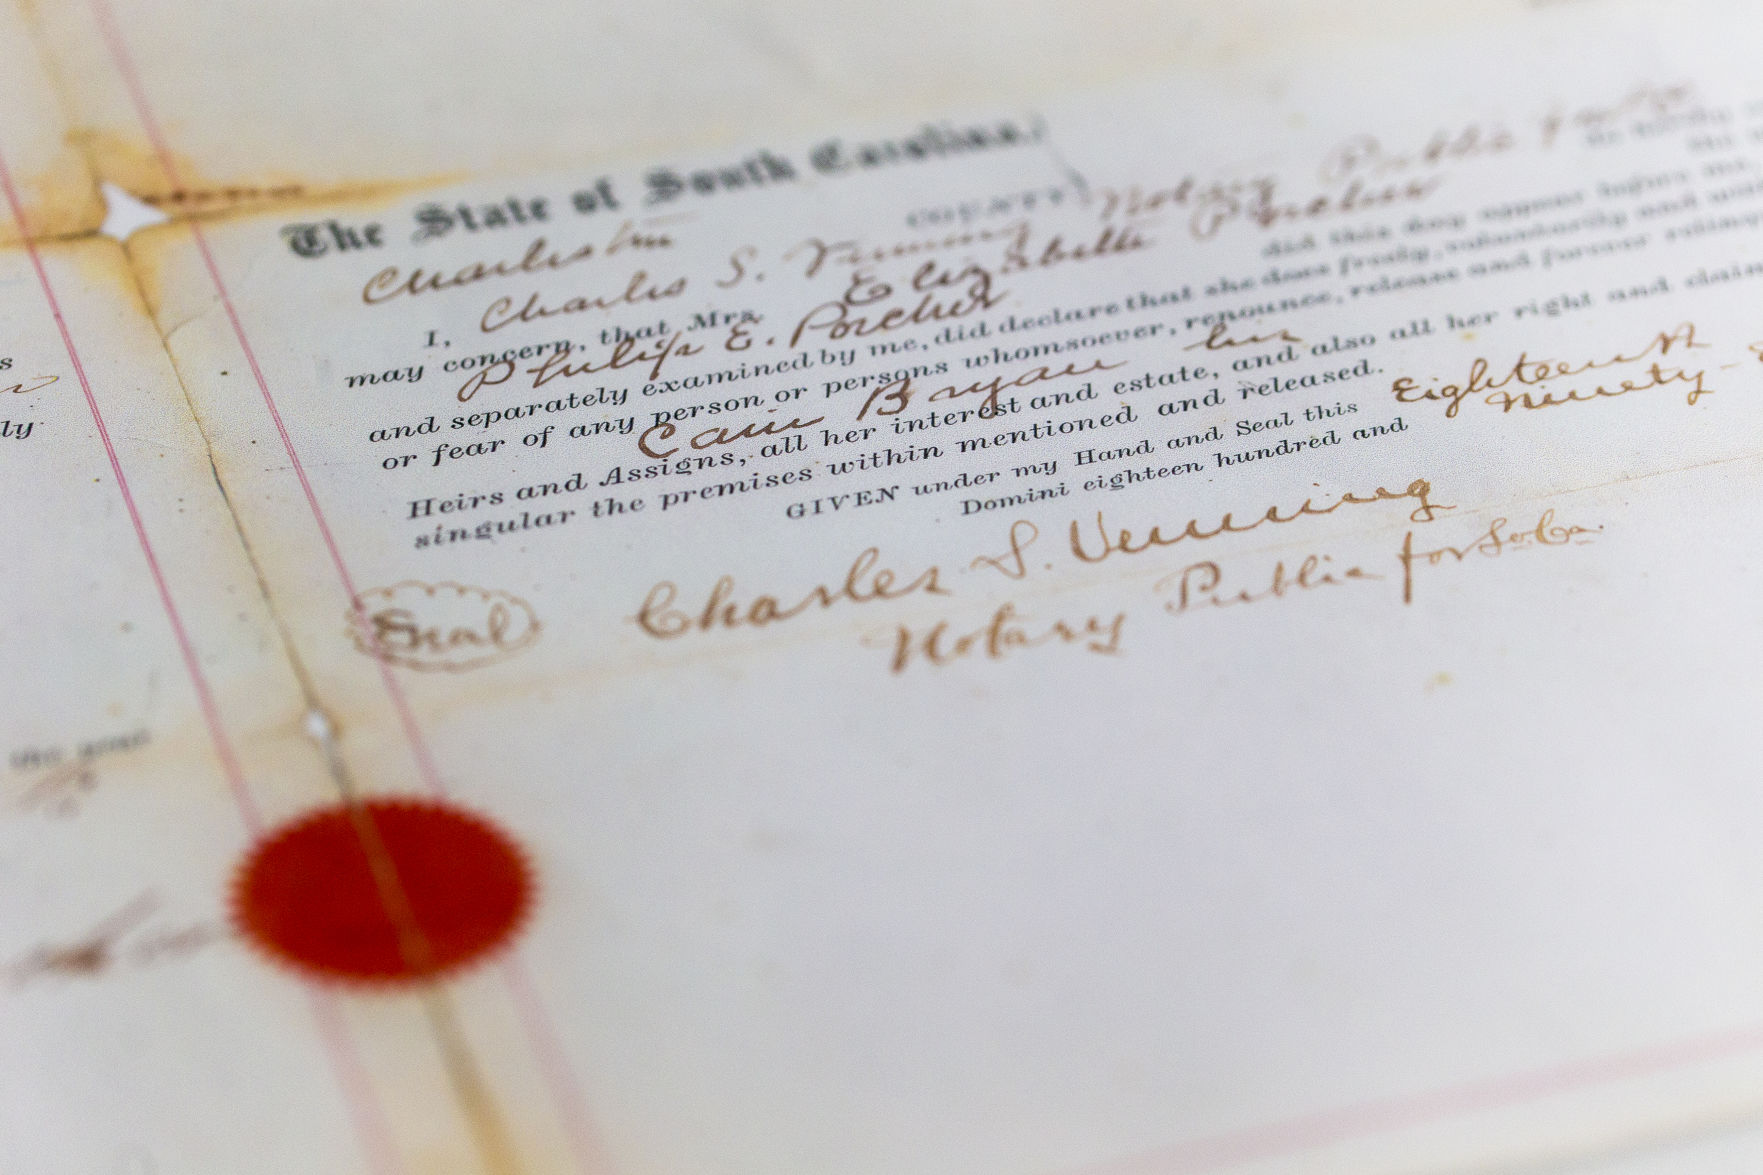 The State of South Carolina,
Charleston COUNTY
I, Charles S. Venning Notary Public
may concern, that Mrs. Elizabeth Porcher
Philip E. Porcher did this day appear before me,
and separately examined by me, did declare that she does freely, voluntarily and
or fear of any person or persons whomsoever, renounce, release and forever
Cain Bryan his
Heirs and Assigns, all her interest and estate, and also all her right and claim
singular the premises within mentioned and released.
GIVEN under my Hand and Seal this Eighteenth
Domini eighteen hundred and ninety-
Seal Charles S. Venning
Notary Public for So. Ca.
ly